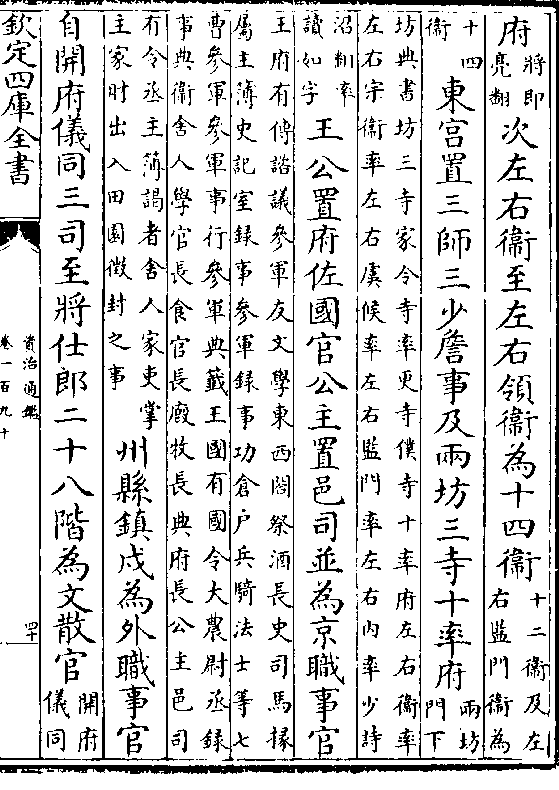 府將即亮翻次左右衛至左右領衛為十四衛十二衛及左右監門衛為
十四衛東宮置三師三少詹事及兩坊三寺十率府兩坊門下
坊典書坊三寺家令寺率更寺僕寺十率府左右衛率
左右宗衛率左右虞候率左右監門率左右内率少詩
沼翻率讀如字王公置府佐國官公主置邑司並為京職事官
王府有傅諮議參軍友文學東西閤祭酒長史司馬掾
屬主簿史記室録事參軍録事功倉户兵騎法士等七
曹參軍參軍事行參軍典籤王國有國令大農尉丞録
事典衛舍人學官長食官長廐牧長典府長公主邑司
有令丞主簿謁者舍人家吏掌主家財出入田園徵封之事州縣鎮戍為外職事官
自開府儀同三司至將仕郎二十八階為文散官開府儀同
欽定四庫全書
資治通鑑
卷一百九十
四十